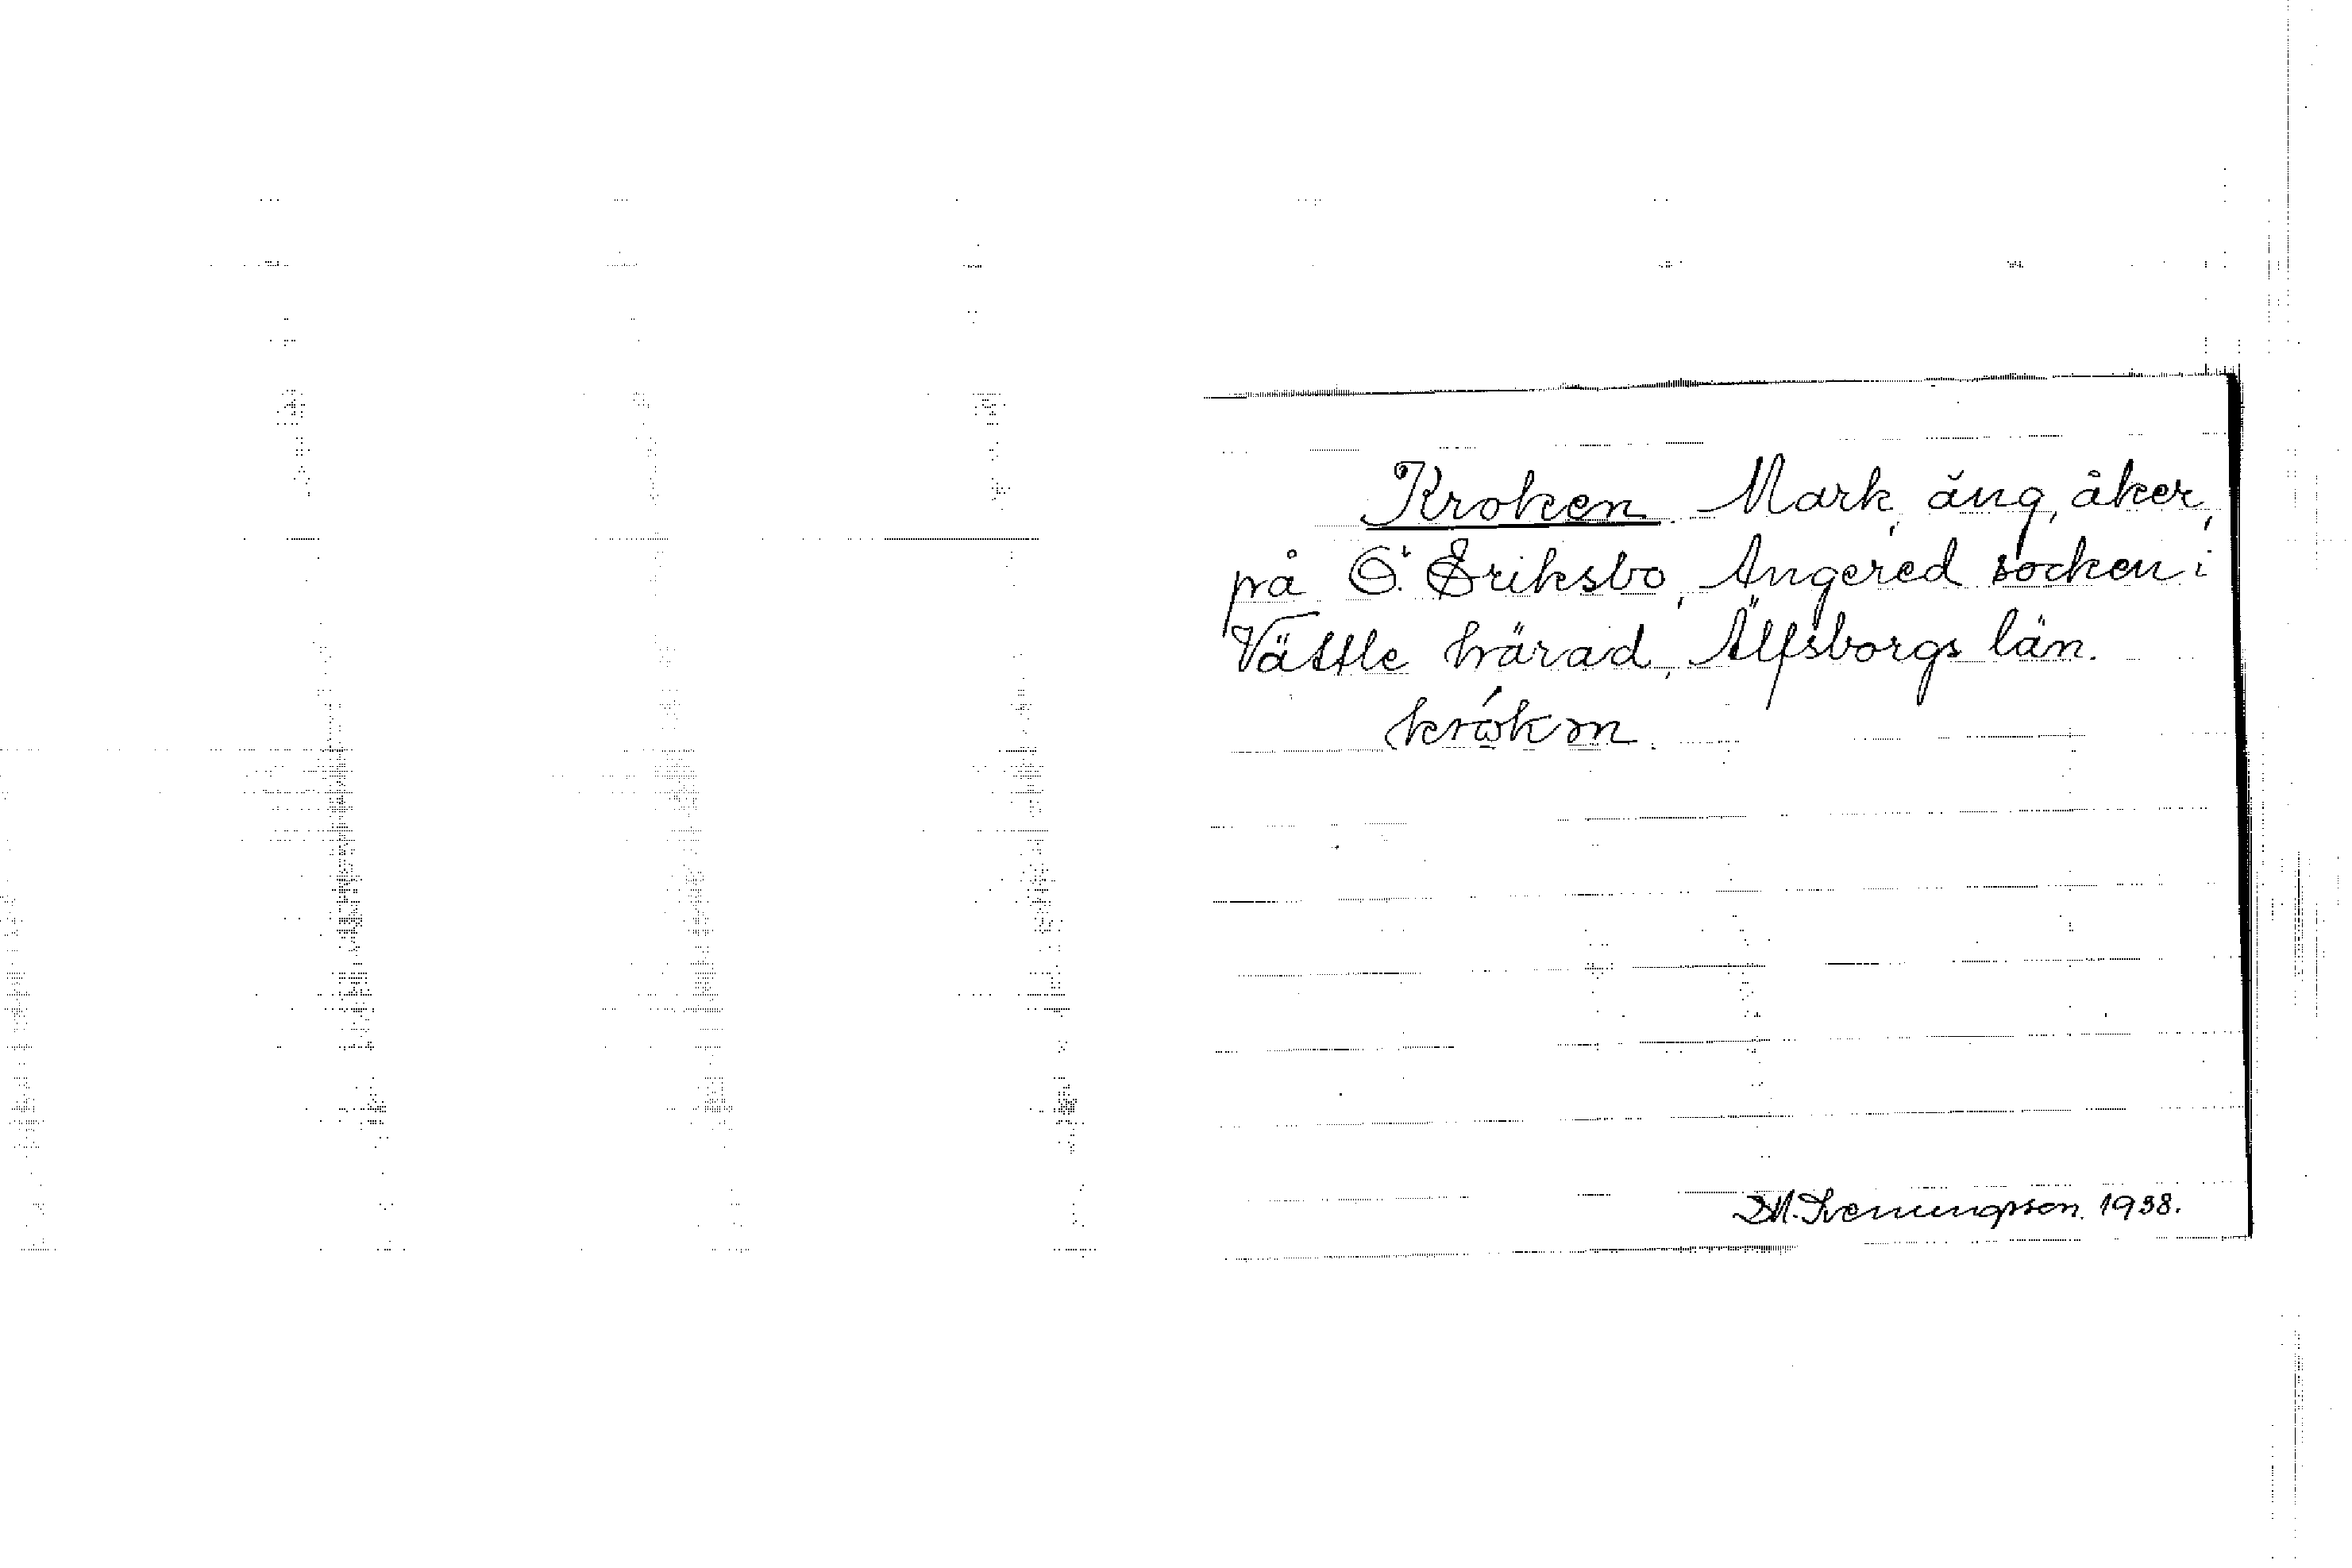 Kroken. Mark, äng, åker,
på Ö. Eriksbo, Angered socken i
Vättle härad, Älfsborgs län.
krókən.
D.M. Svenungsson. 1938.